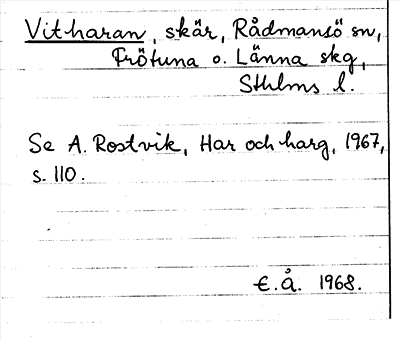 Vitharan, skär, Rådmansö sn,
Frötuna o. Länna skg,
Sthlms l.
Se A. Rostvik, Har och harg, 1967,
s. 110.
E.Å. 1968.